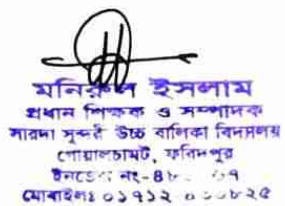 মনিরুল ইসলাম
প্রধান শিক্ষক ও সম্পাদক
সারদা সুন্দরী উচ্চ বালিকা বিদ্যালয়
গোয়ালচামট, ফরিদপুর
ইনডেক্স নং-
মোবাইলঃ